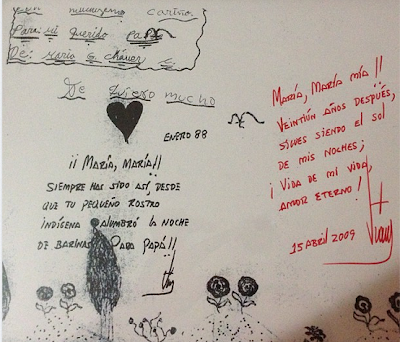 Con muchísimo cariño
Para: mi querido Papá
De: María G. Chávez C.
Te quiero mucho
ENERO 88
¡¡ MARÍA, MARÍA!!
SIEMPRE HAS SIDO ASÍ, DESDE
QUE TU PEQUEÑO ROSTRO
INDÍGENA ALUMBRÓ LA NOCHE
DE BARINAS!! PARA PAPÁ!!
MARÍA, MARÍA MÍA !!
VEINTIÚN AÑOS DESPUÉS,
SIGUES SIENDO EL SOL
DE MIS NOCHES;
¡ VIDA DE MI VIDA,
AMOR ETERNO !
15 ABRIL 2009